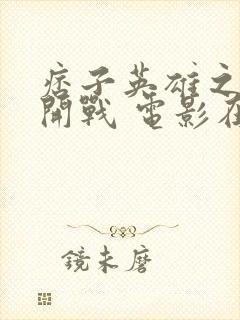 痞子英雄之
開戰 電影在
鏡未磨